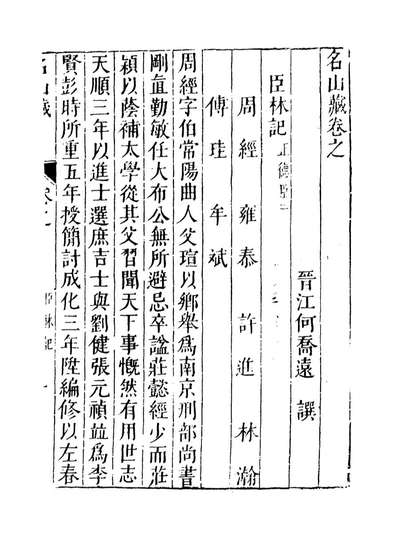 名山藏卷之
晉江何喬遠 譔
臣林記
周經 雍泰 許進 林瀚
傅珪 牟斌
周經字伯常陽曲人父瑄以鄉舉爲南京刑部尚書
剛直勤敏任大布公無所避忌卒諡莊懿經少而莊
穎以蔭補太學從其父習聞天下事慨然有用世志
天順三年以進士選庶吉士與劉健張元禎並爲李
賢彭時所重五年授簡討成化三年陞編修以左春
名山藏 臣林記 一